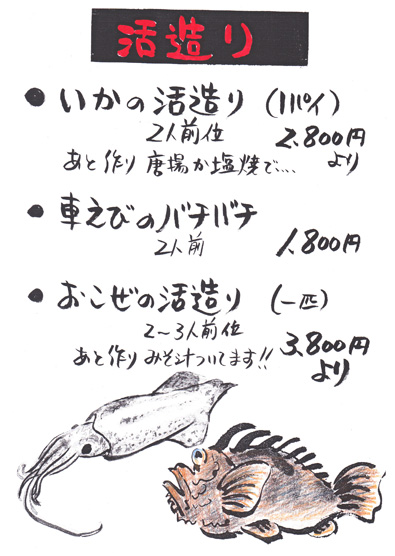 活造り
● いかの活造り (1パイ)
2人前位 2,800円
あと作り 唐揚か塩焼で… より
● 車えびのバチバチ
2人前 1,800円
● おこぜの活造り (一匹)
2～3人前位 3,800円
あと作り みそ汁ついてます!! より